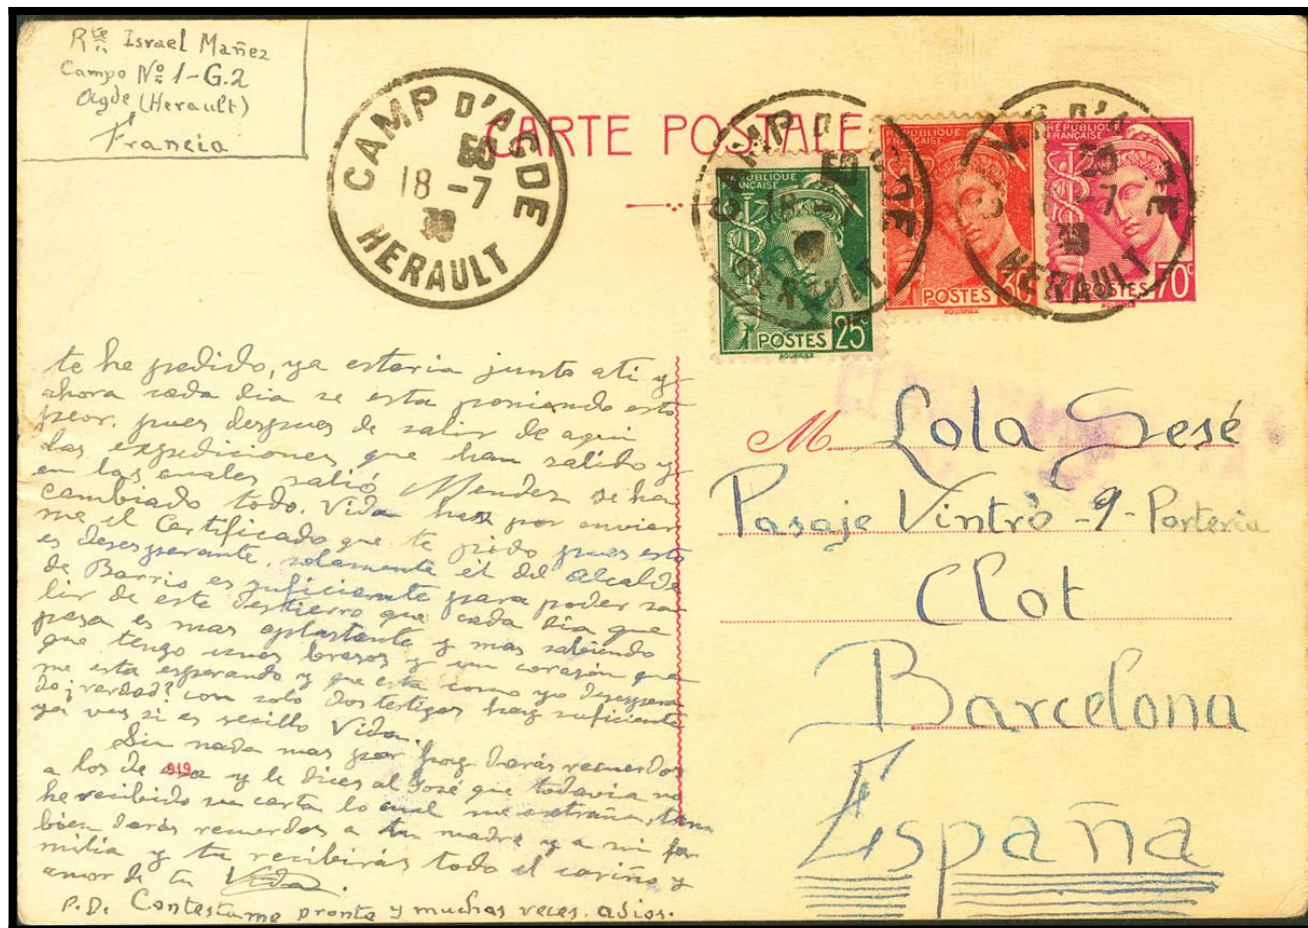 Rte Israel Mañez
Campo Nº 1-G.2
Agde (Herault)
Francia
CAMP D'AGDE
18 -7
39
HERAULT
CARTE POSTALE
CAMP D'AGDE
18 -7
HERAULT
REPUBLIQUE
FRANÇAISE
POSTES 25c
REPUBLIQUE
FRANÇAISE
POSTES 30c
REPUBLIQUE
FRANÇAISE
POSTES 70c
-7
39
HERAULT
te he pedido, ya estaria junto ati y
ahora cada dia se esta poniendo esto
peor, pues despues de salir de aqui
las expediciones que han salido y
en las cuales salió Mendez se ha
cambiado todo. Vida haz por enviar
me el Certificado que te pido pues esto
es desesperante, solamente el del alcalde
de Barrio es suficiente para poder sa
lir de este destierro que cada dia que
pasa es mas aplastante y mas sabiendo
que tengo unos brazos y un corazón que
me esta esperando y que esta como yo desespera
do ¡verdad? con solo dos testigos hay suficiente
ya ves si es secillo Vida.
Sin nada mas por hoy darás recuerdos
a los de esa y le dices al José que todavia no
he recibido su carta lo cual me extraña, tam
bien darás recuerdos a tu madre y a mi fa
milia y tu recibirás todo el cariño y
amor de tu Vida.
P.D. Contestame pronto y muchas veces. adios.
919
M. Lola Sesé
Pasaje Vintró -9- Porteria
Clot
Barcelona
España